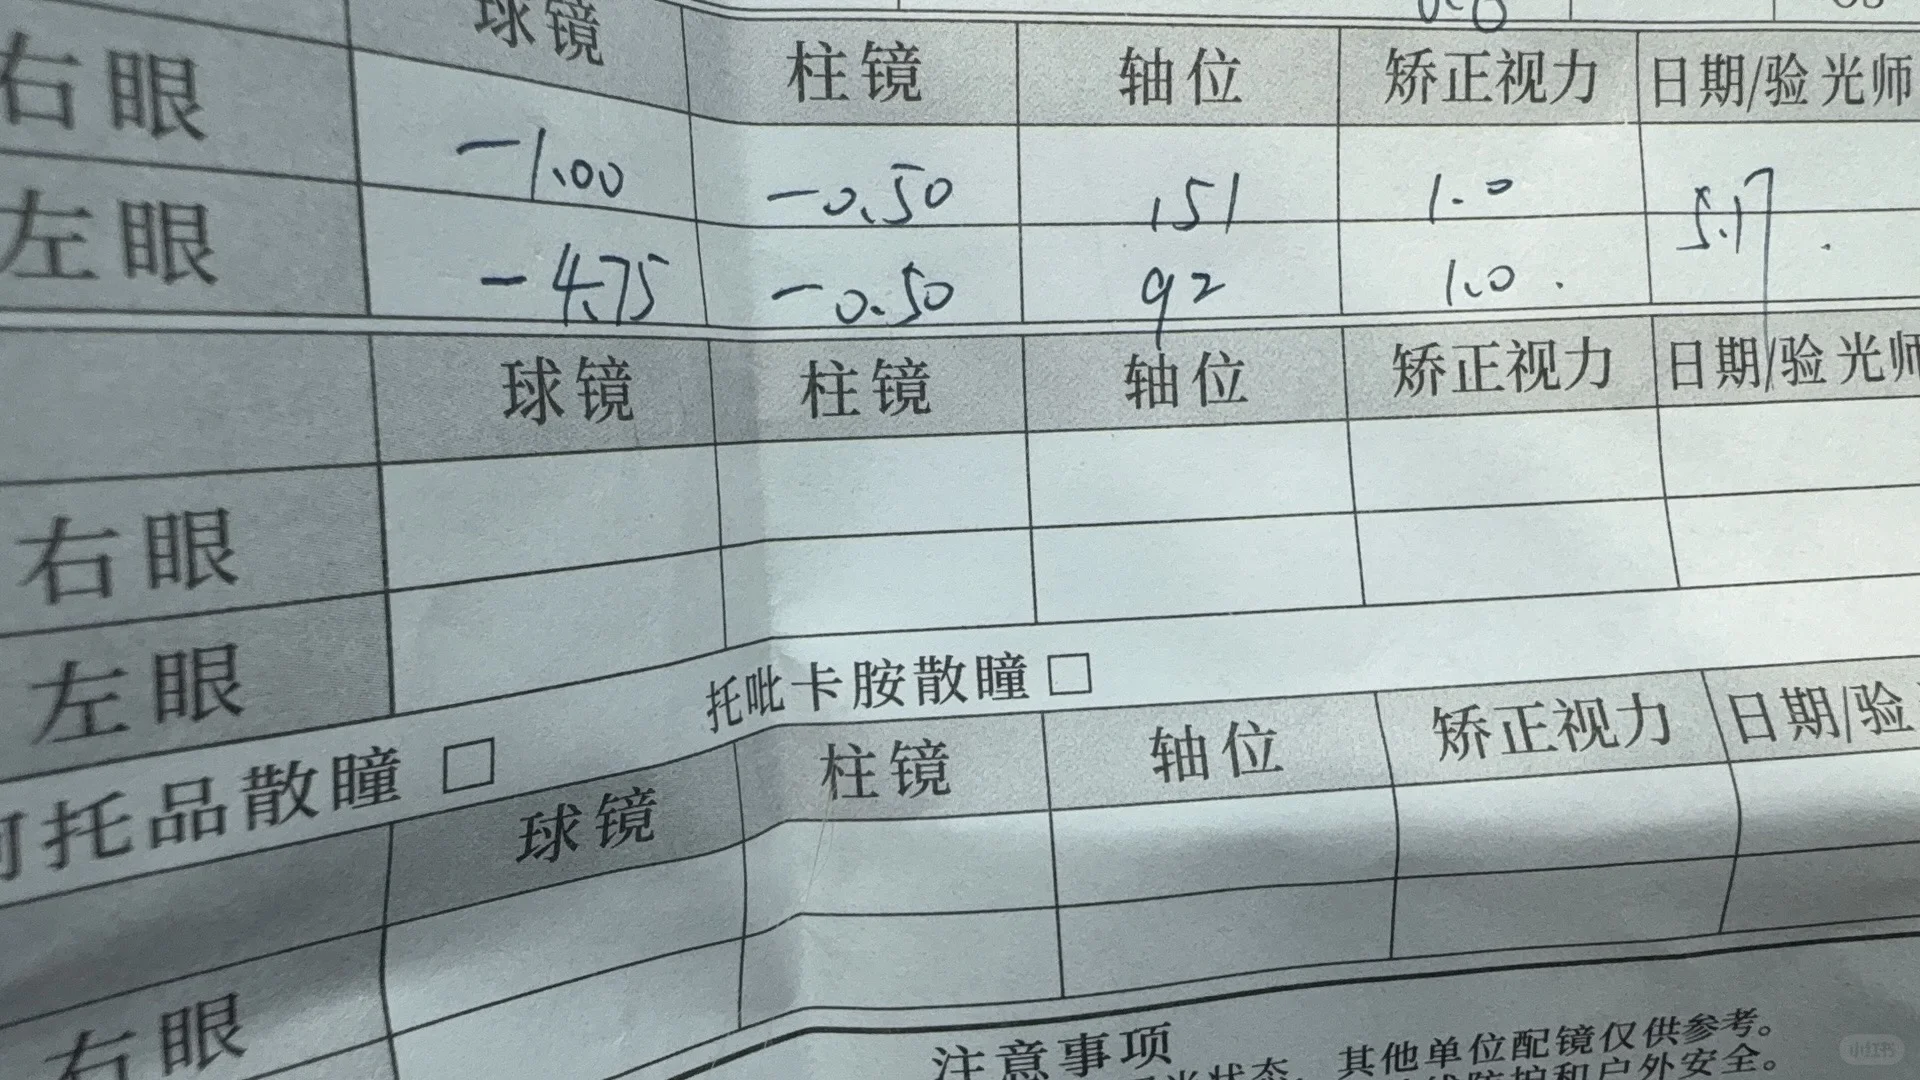 球镜 柱镜 轴位 矫正视力 日期/验光师
右眼 -1.00 -0.50 151 1.0 5.17
左眼 -4.75 -0.50 92 1.0
球镜 柱镜 轴位 矫正视力 日期/验光师
右眼
左眼
阿托品散瞳 □ 托吡卡胺散瞳 □
球镜 柱镜 轴位 矫正视力 日期/验
右眼
注意事项
其他单位配镜仅供参考。
户外安全。
小红书